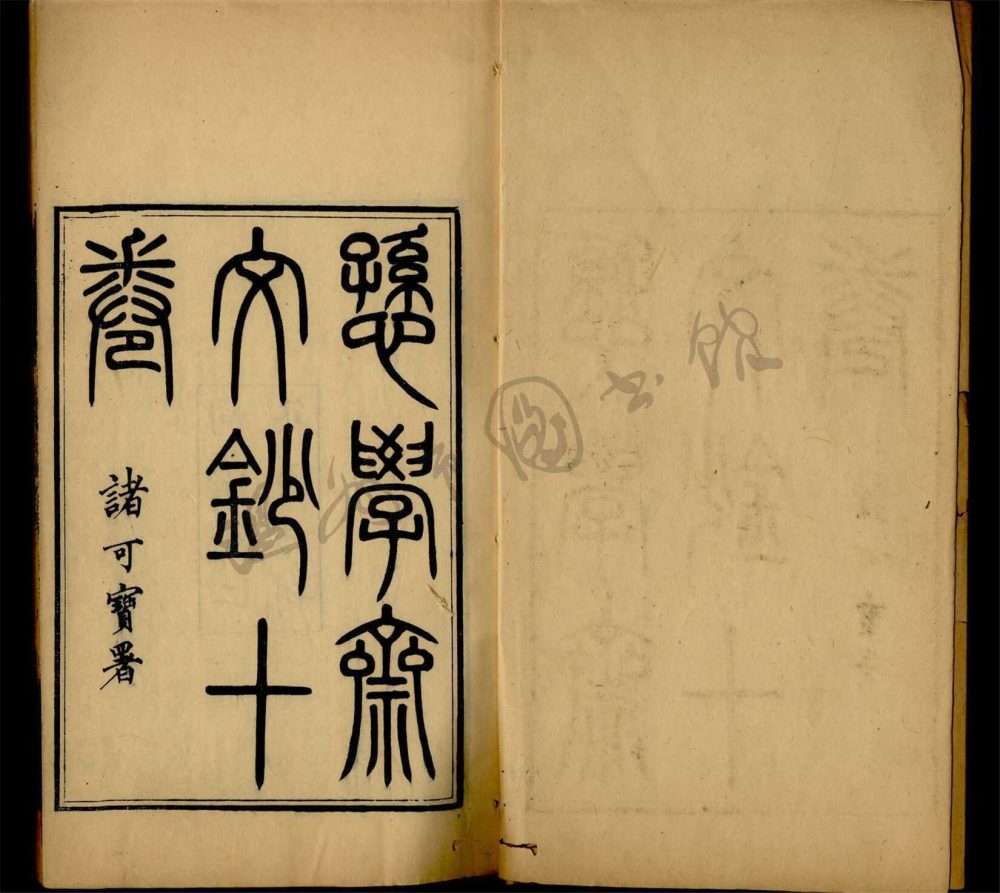 愻學齋
文鈔十
卷
諸可寶署